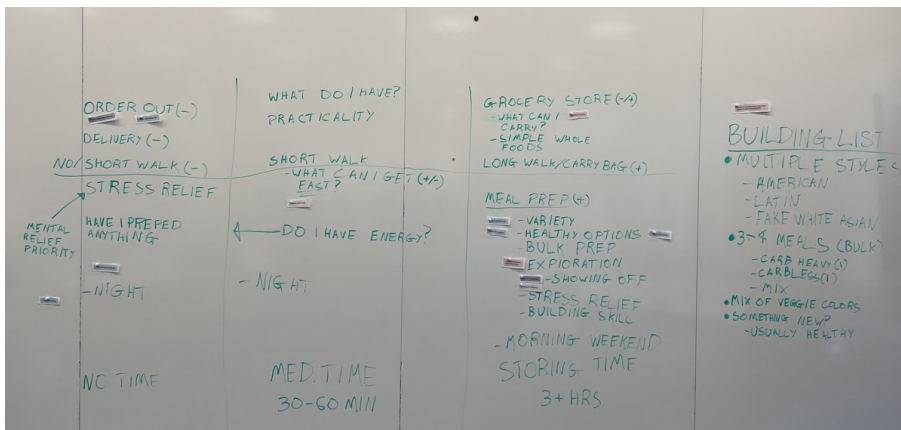 ORDER OUT (-)
DELIVERY (-)
NO/SHORT WALK (-)
STRESS RELIEF
MENTAL
RELIEF
PRIORITY
HAVE I PREPED
ANYTHING
-NIGHT
NO TIME
WHAT DO I HAVE?
PRACTICALITY
SHORT WALK
-WHAT CAN I GET (+/-)
FAST?
DO I HAVE ENERGY?
-NIGHT
MED. TIME
30-60 MIN
GROCERY STORE (-/+)
-WHAT CAN I
CARRY?
-SIMPLE WHOLE
FOODS
LONG WALK/CARRY BAG (+)
MEAL PREP (+)
-VARIETY
-HEALTHY OPTIONS
-BULK PREP
EXPLORATION
-SHOWING OFF
-STRESS RELIEF
-BUILDING SKILL
-MORNING WEEKEND
STORING TIME
3+ HRS
BUILDING LIST
•MULTIPLE STYLES
-AMERICAN
-LATIN
-FAKE WHITE ASIAN
•3-4 MEALS (BULK)
-CARB HEAVY (1)
-CARBLESS (1)
-MIX
•MIX OF VEGGIE COLORS
•SOMETHING NEW?
-USUALLY HEALTHY